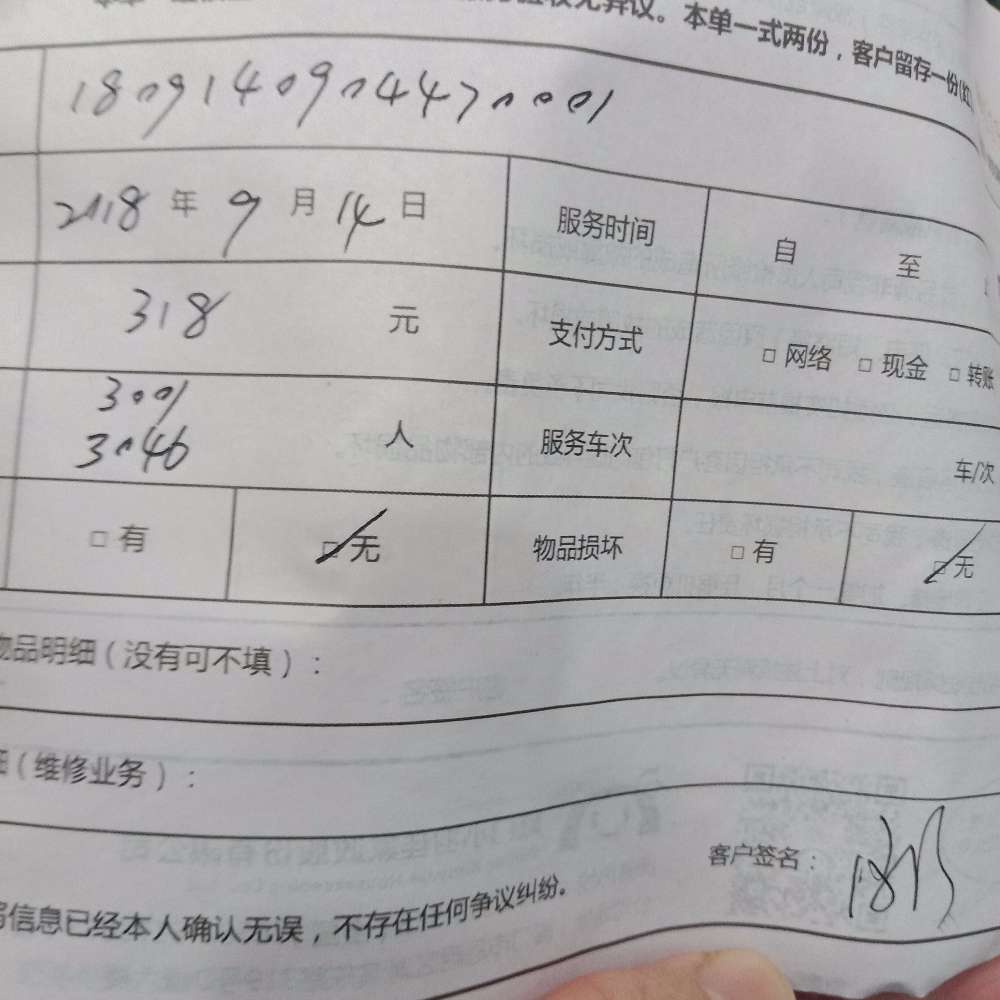 验收无异议。本单一式两份，客户留存一份(红
1809140904470001
2018 年 9 月 14 日 服务时间 自 至
318 元 支付方式 □ 网络 □ 现金 □ 转账
3001
3046 人 服务车次 车/次
□ 有 □ 无 物品损坏 □ 有 □ 无
物品明细（没有可不填）：
细（维修业务）：
客户签名：
写信息已经本人确认无误，不存在任何争议纠纷。